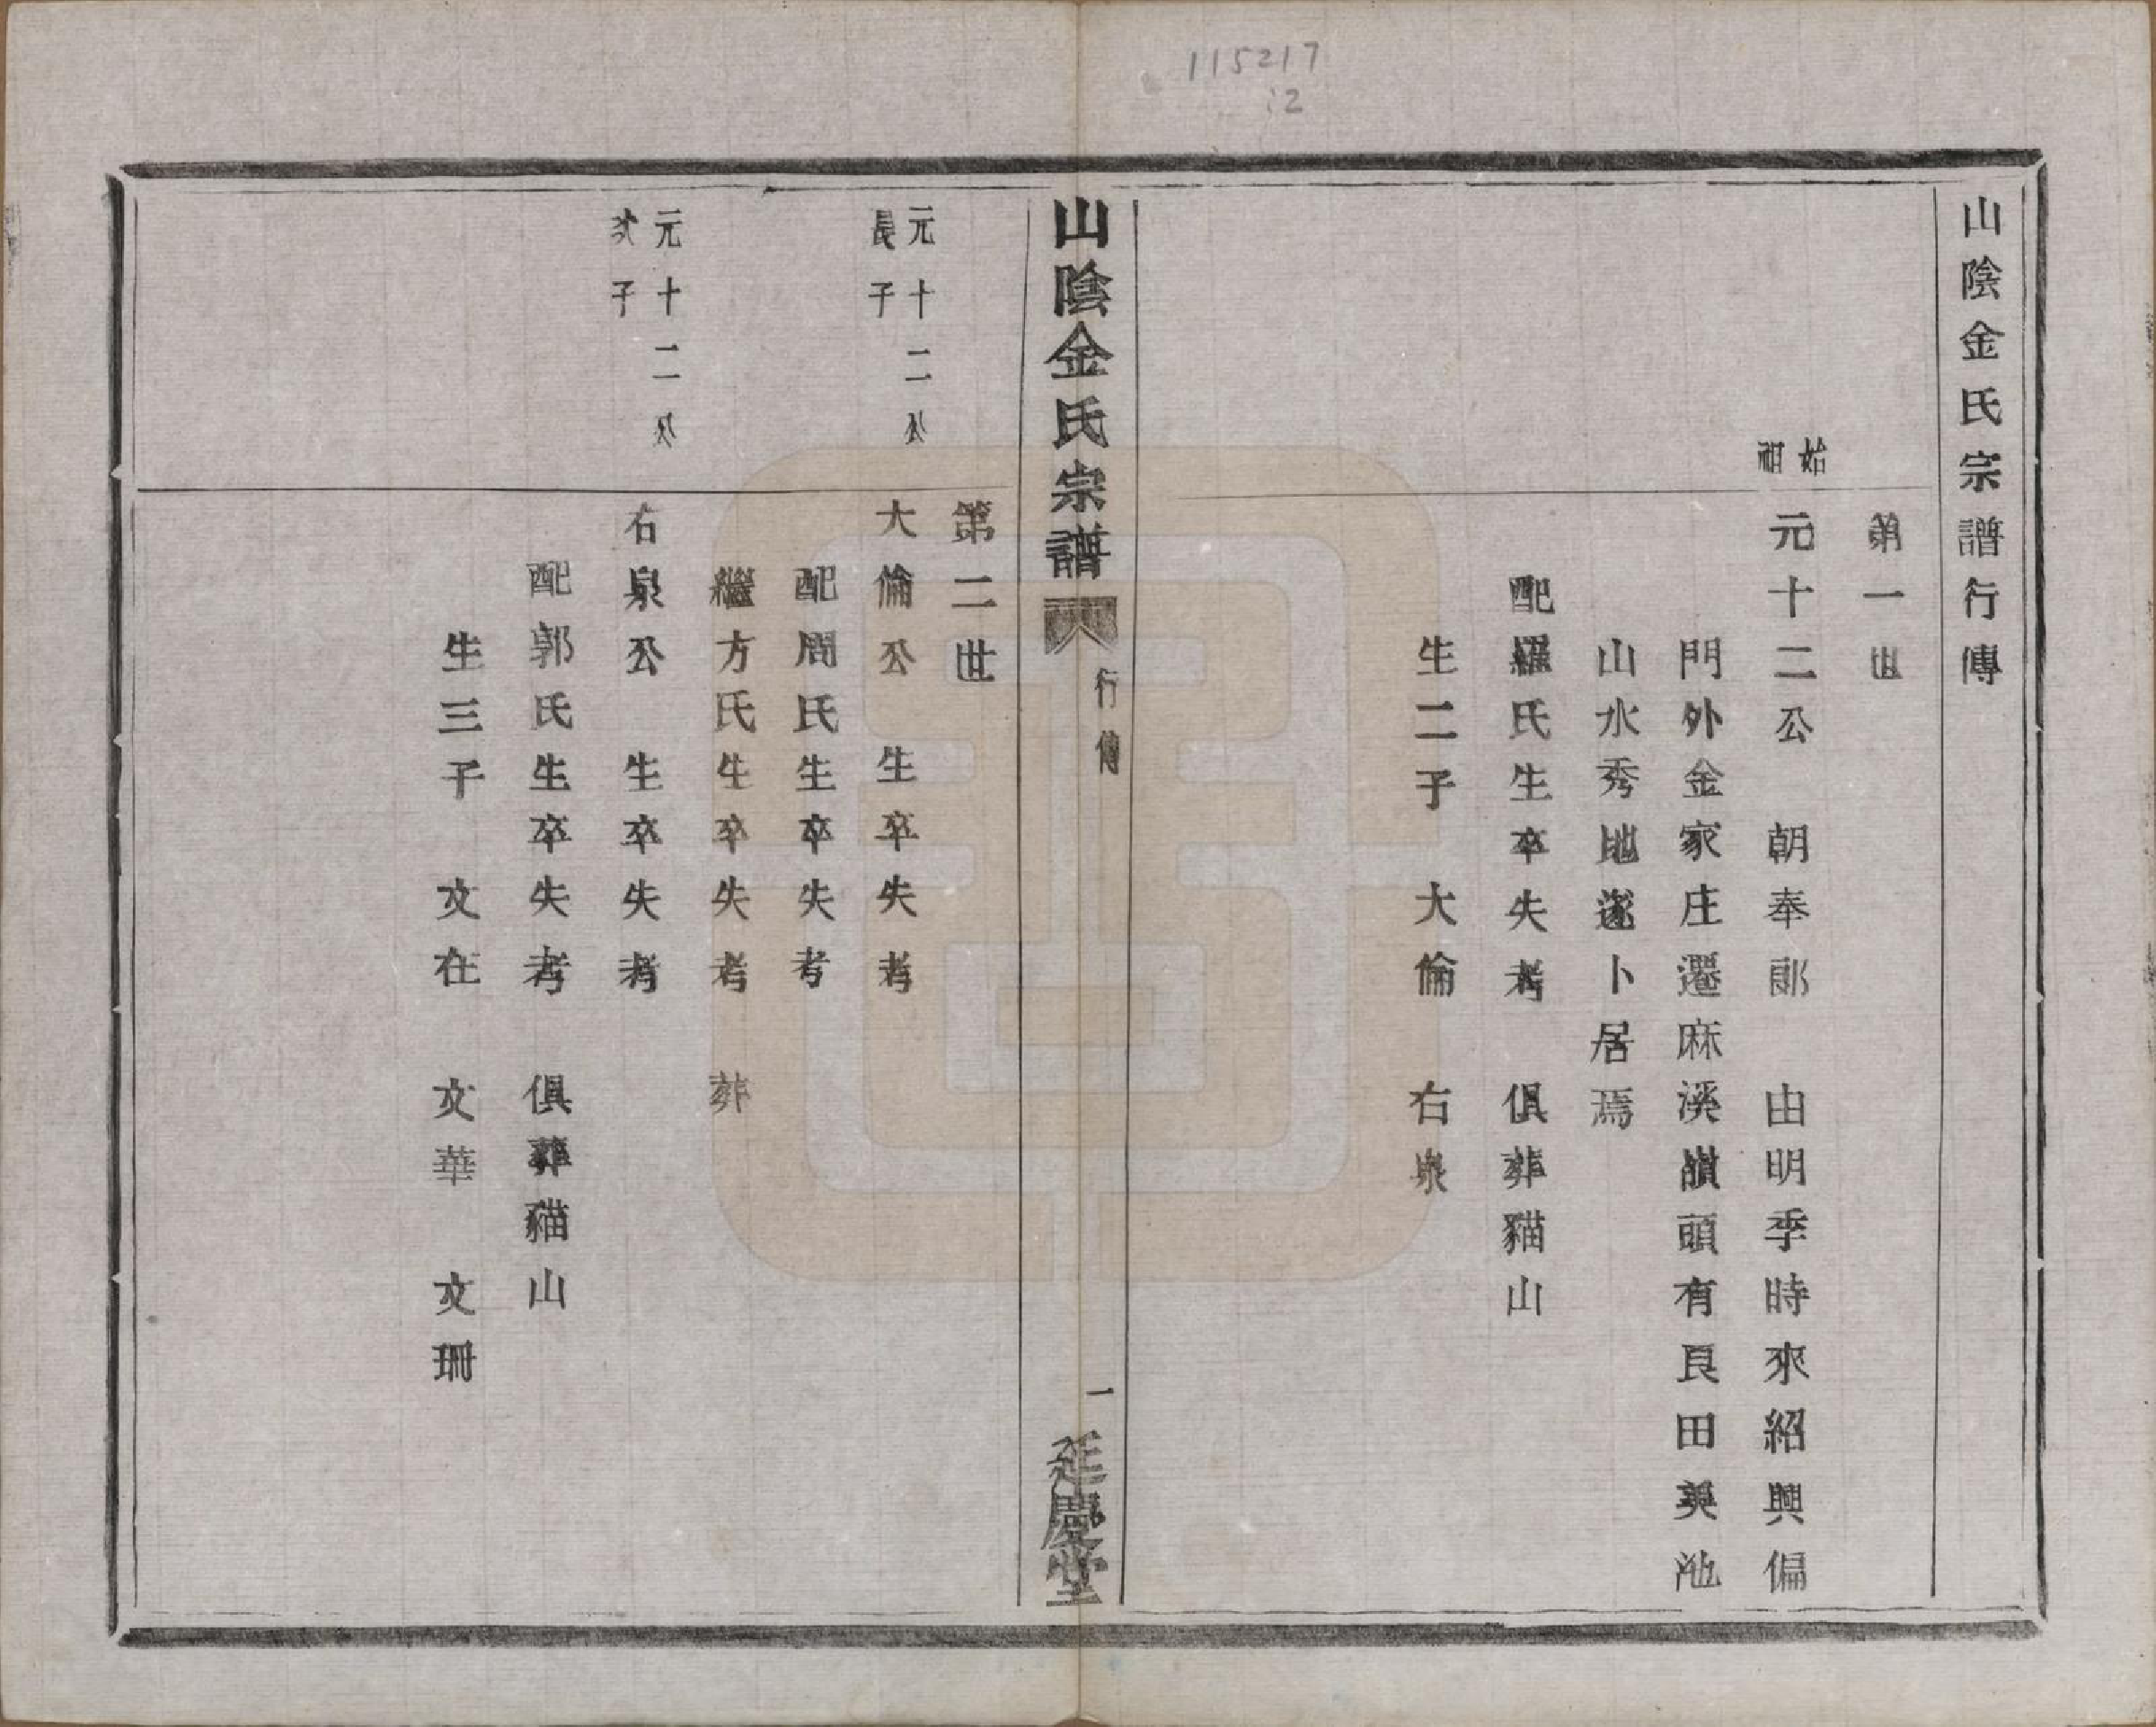 115217
12
山陰金氏宗譜行傳
第一世
始祖
元十二公　朝奉郎　由明季時來紹興偏
門外金家庄遷麻溪嶺頭有良田美池
山水秀地遂卜居焉
配羅氏生卒失考　俱葬貓山
生二子　大倫　右泉
山陰金氏宗譜　行傳　一　延慶堂
第二世
元十二公長子
大倫公　生卒失考
配周氏生卒失考
繼方氏生卒失考　葬
元十二公次子
右泉公　生卒失考
配郭氏生卒失考　俱葬貓山
生三子　文在　文華　文珊